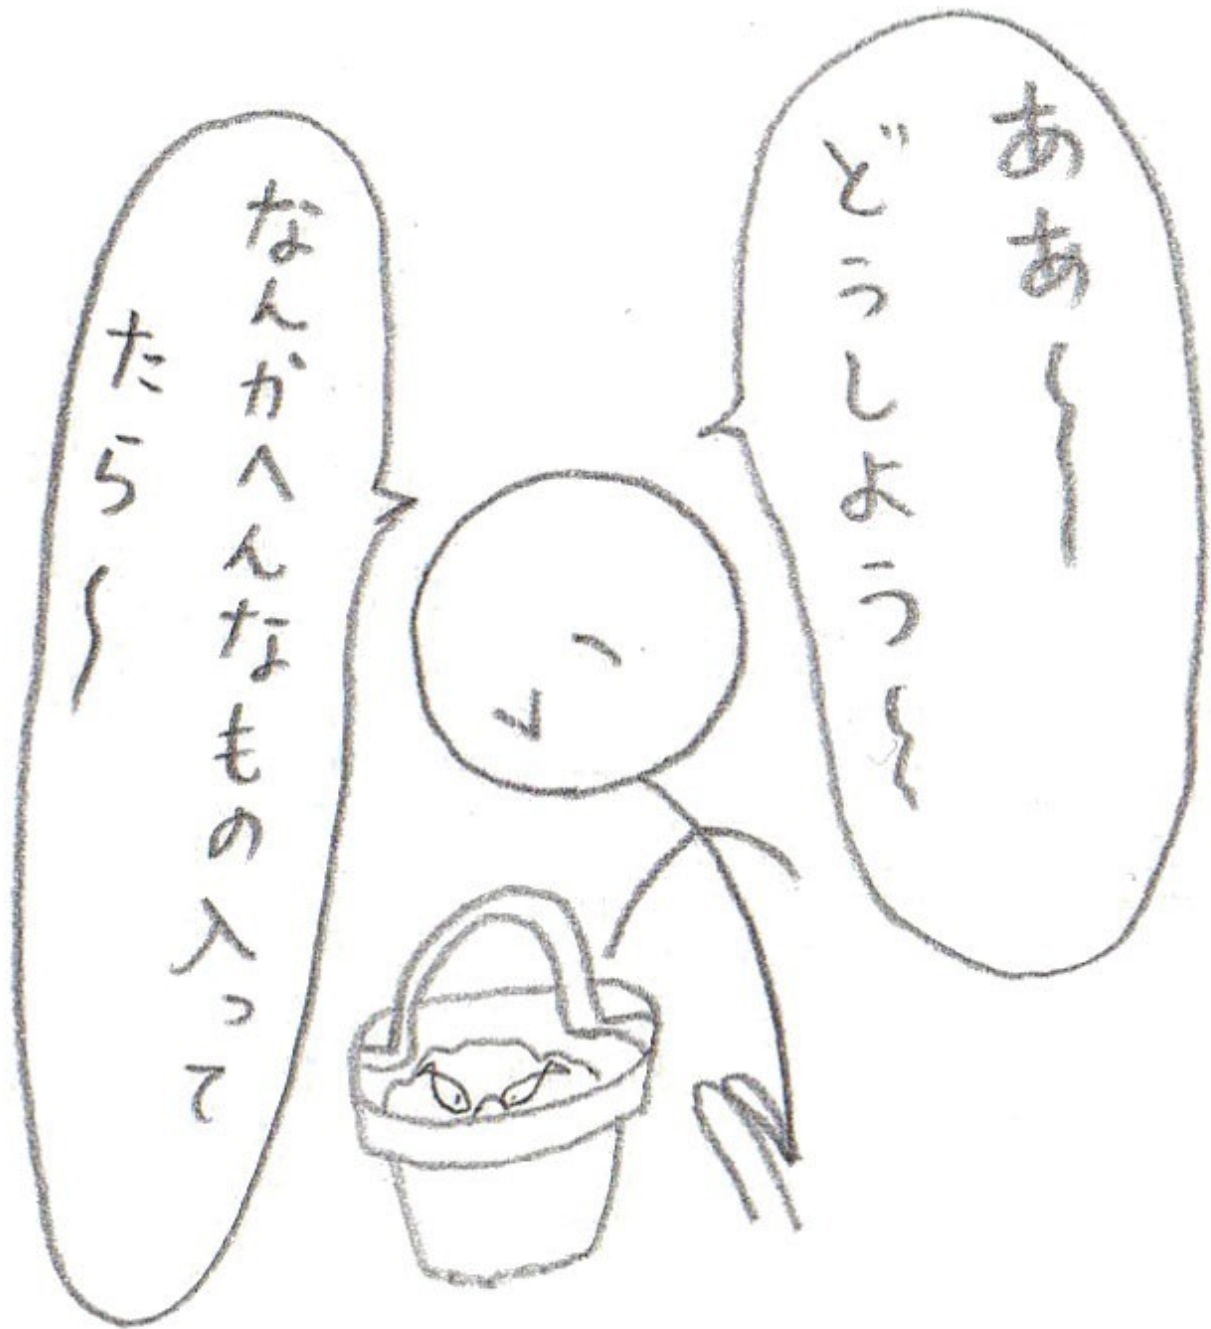 ああ〜
どうしよう〜
なんかへんなもの入って
たら〜